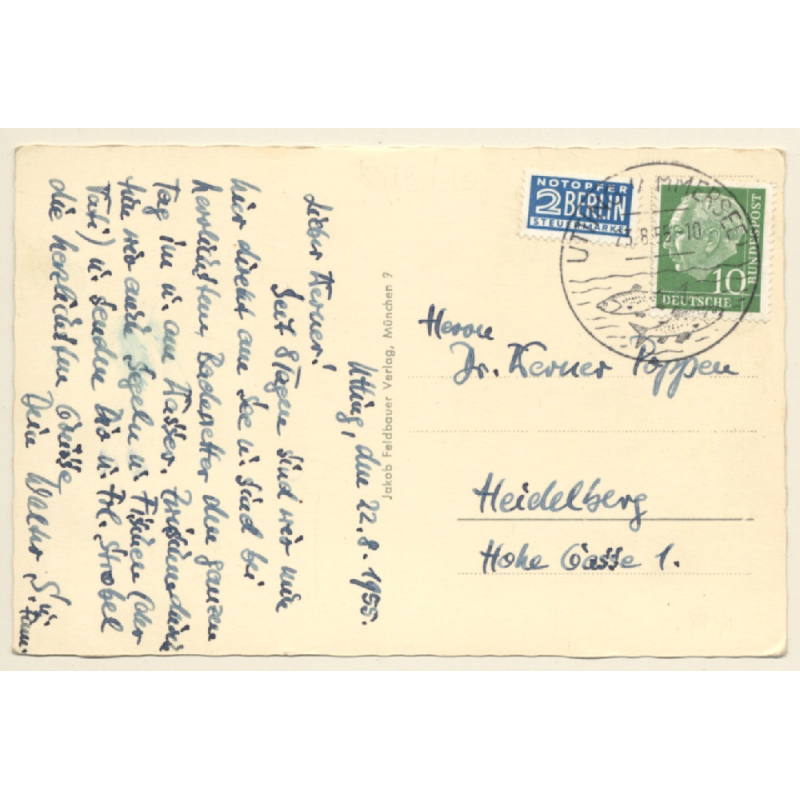 Utting, den 22.8.1955.
Lieber Werner!
Seit 8 Tagen sind wir nun
hier direkt am See u. sind bei
herrlichstem Badewetter den ganzen
Tag im u. am Wasser. Zwischendurch
tun wir auch Segeln u. Fischen (der
Vati) u. senden Dir u. Frl. Strobel
die herzlichsten Grüsse
Dein Walter S. u.
Fam.
Jakob Feldbauer Verlag, München 9
NOTOPFER
2 BERLIN
STEUERMARKE
UTTING AMMERSEE
23.8.55-10
10
DEUTSCHE
BUNDESPOST
Herrn
Dr. Werner Poppen
Heidelberg
Hohe Gasse 1.